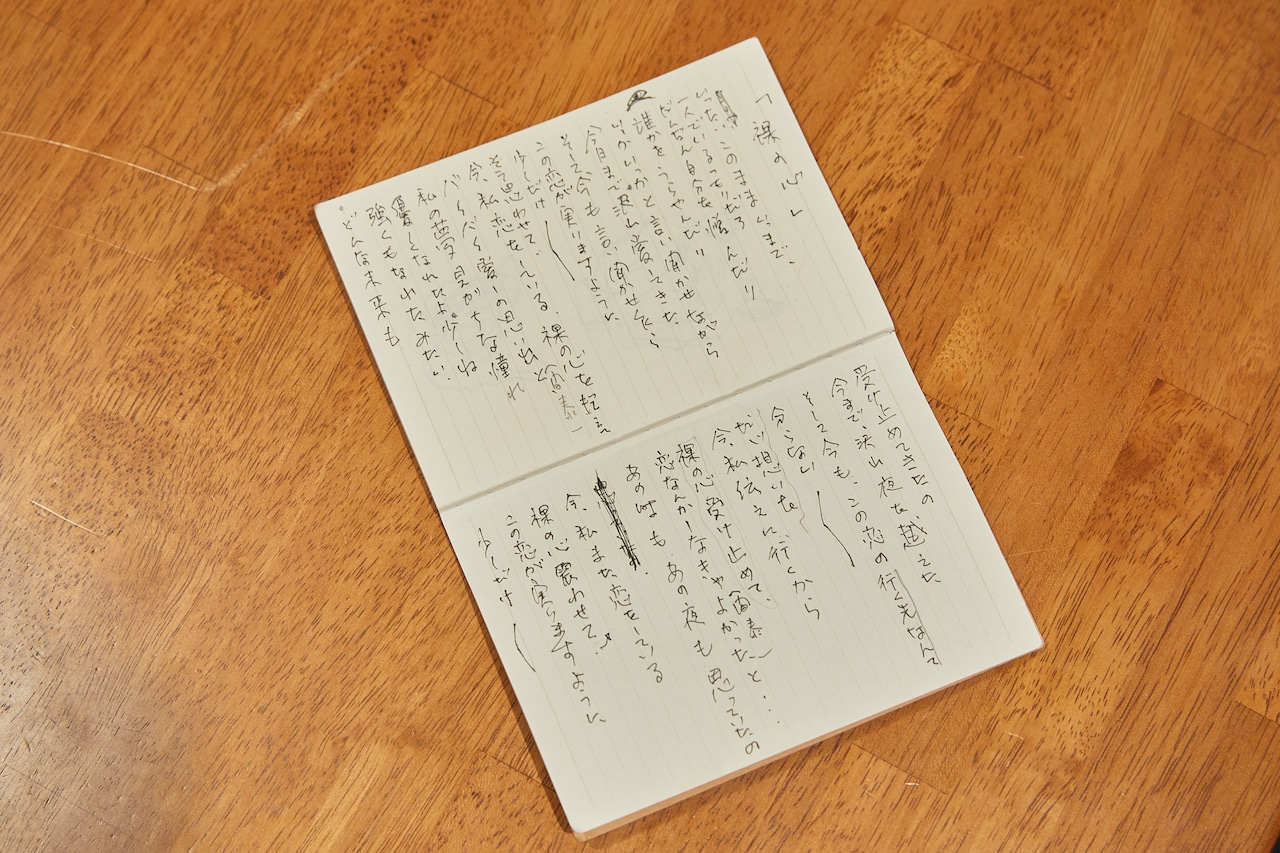 「裸の心」
いったいこのままいつまで、
一人でいるつもりだろう
だんだん自分を憎んだり
誰かをうらやんだり
いつかいつかと言い聞かせながら
今日まで沢山愛してきた、
そして今も言い聞かせてる
この恋が実りますように、
少しだけ
そう思わせて、
今、私恋をしている、裸の心を抱えて
バイバイ愛しの思い出と
私の夢見がちな憧れ
優しくなれたよ、少しね
強くもなれたみたい、
どんな未来も
受け止めてきたの
今まで、沢山夜を越えた
そして今も、この恋の行く先なんて
分らない
ただ想いを
今、私伝えに行くから
裸の心受け止めて、と
恋なんかしなきゃよかった、と思っていたの
あの時も、あの夜も
今、私また恋をしている
裸の心震わせて、
この恋が実りますように、
少しだけ